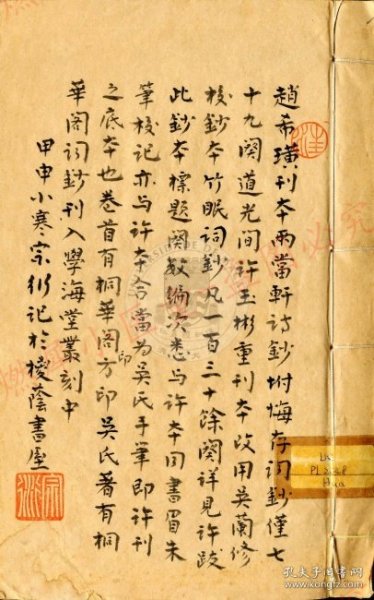 趙希璜刊本兩當軒詩鈔坿悔存詞鈔僅七
十九闋道光间許玉彬重刊本改用吳蘭修
校鈔本竹眠詞鈔凡一百三十餘闋詳見許跋
此鈔本標題闋數編次悉与許本同書眉朱
筆校記亦与許本合當为吳氏手筆即許刊
之底本也卷首有桐華阁方印吳氏著有桐
華阁詞鈔刊入學海堂叢刻中
甲申小寒宗衍记於櫻蔭書屋
汪
宗衍
PL
Hua
孔夫子旧书网